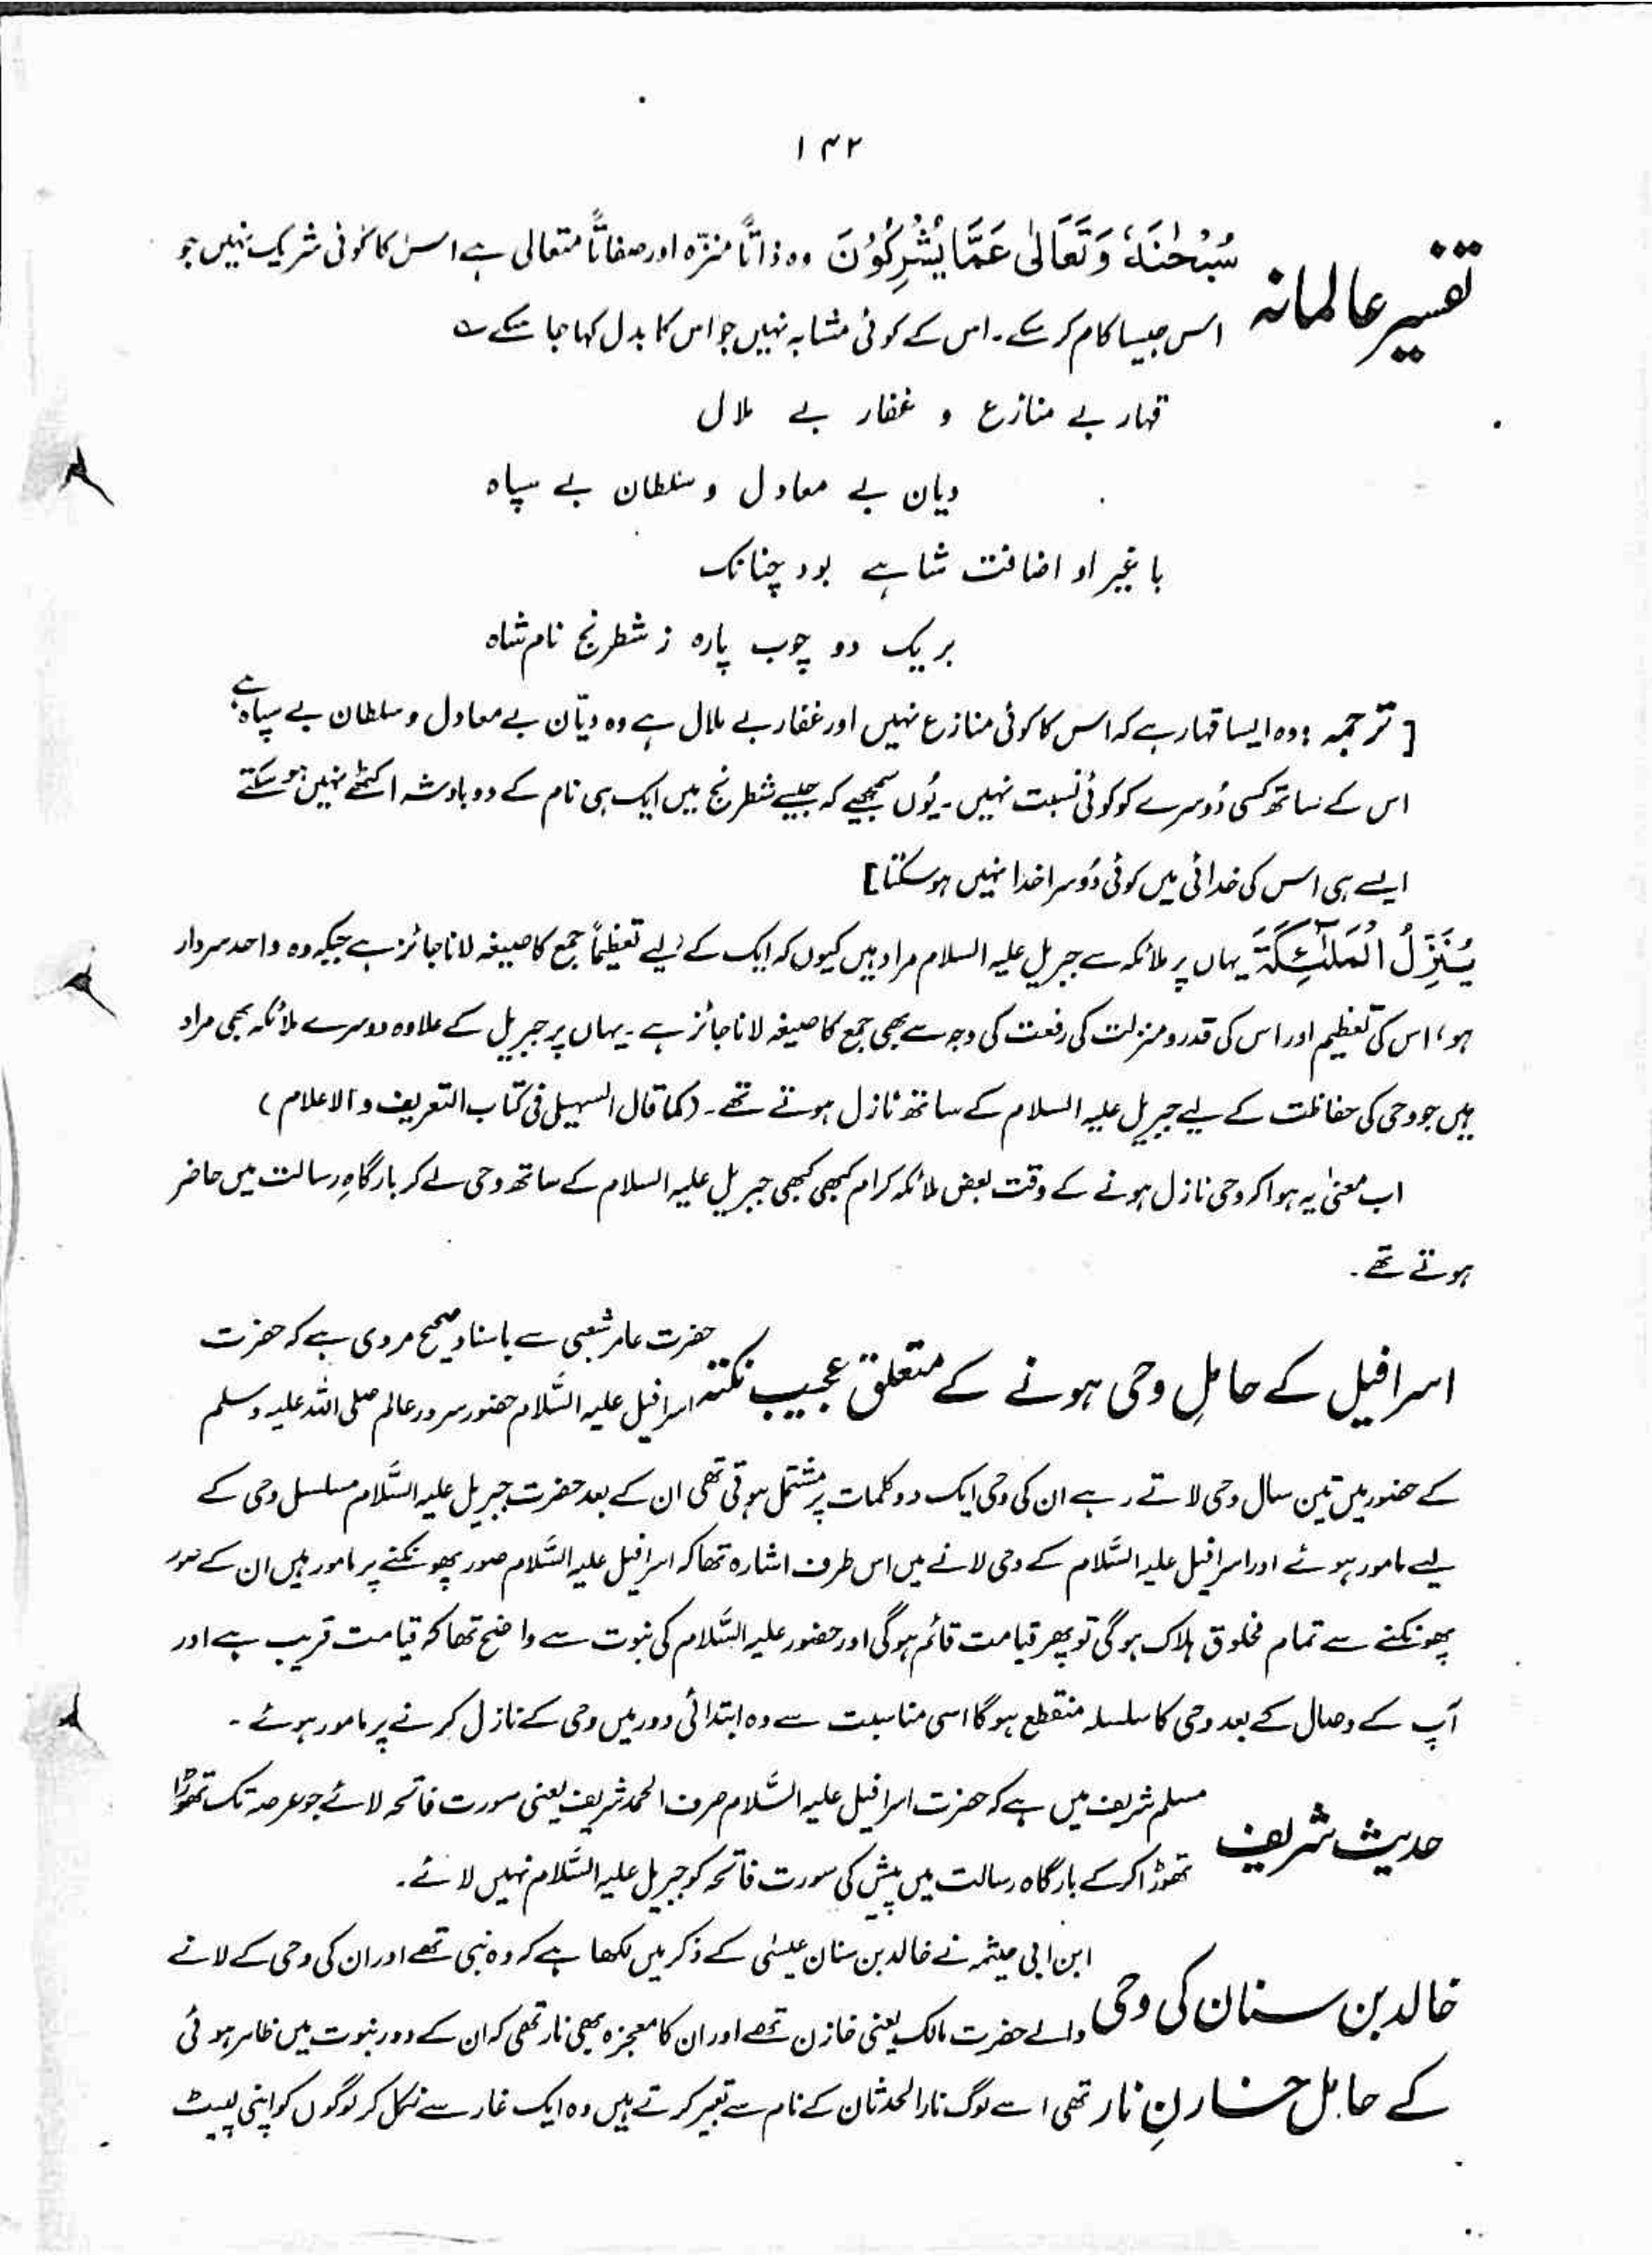 ۱۴۲
تفسیر عالمانہ
سُبْحٰنَهٗ وَ تَعَالٰی عَمَّا یُشْرِكُوْنَ وہ ذاتاً منزّہ اور صفاتاً متعالی ہے اس کا کوئی شریک نہیں جو
اس جیسا کام کر سکے ۔ اس کے کوئی مشابہ نہیں جو اس کا بدل کہا جا سکے ؎
قہار بے منازع و غفار بے ملال
دیان بے معادل و سلطان بے سپاہ
با غیر او اضافت شاہے بود چنانک
بر یک دو چوب پارہ ز شطرنج نام شاہ
[ ترجمہ : وہ ایسا قہار ہے کہ اس کا کوئی منازع نہیں اور غفار بے ملال ہے وہ دیّان بے معادل و سلطان بے سپاہ ہے
اس کے ساتھ کسی دُوسرے کو کوئی نسبت نہیں ۔ یُوں سمجھیے کہ جیسے شطرنج میں ایک ہی نام کے دو بادشہ اکٹھے نہیں ہو سکتے
ایسے ہی اس کی خدائی میں کوئی دُوسرا خدا نہیں ہو سکتا ]
یُنَزِّلُ الْمَلٰٓئِكَةَ یہاں پر ملائکہ سے جبریل علیہ السلام مراد ہیں کیوں کہ ایک کے لیے تعظیماً جمع کا صیغہ لانا جائز ہے جبکہ وہ واحد سردار
ہو ، اس کی تعظیم اور اس کی قدر و منزلت کی رفعت کی وجہ سے بھی جمع کا صیغہ لانا جائز ہے ۔ یہاں پر جبریل کے علاوہ دوسرے ملائکہ بھی مراد
ہیں جو وحی کی حفاظت کے لیے جبریل علیہ السلام کے ساتھ نازل ہوتے تھے ۔ (کما قال السہیلی فی کتاب التعریف و الاعلام )
اب معنیٰ یہ ہوا کہ وحی نازل ہونے کے وقت بعض ملائکہ کرام کبھی کبھی جبریل علیہ السلام کے ساتھ وحی لے کر بارگاہِ رسالت میں حاضر
ہوتے تھے ۔
اسرافیل کے حاملِ وحی ہونے کے متعلق عجیب نکتہ
حضرت عامر شعبی سے باسناد صحیح مروی ہے کہ حضرت
اسرافیل علیہ السَّلام حضور سرور عالم صلی اللہ علیہ وسلم
کے حضور میں تین سال وحی لاتے رہے ان کی وحی ایک دو کلمات پر مشتمل ہوتی تھی ان کے بعد حضرت جبریل علیہ السَّلام مسلسل وحی کے
لیے مامور ہوئے اور اسرافیل علیہ السَّلام کے وحی لانے میں اس طرف اشارہ تھا کہ اسرافیل علیہ السَّلام صور پھونکنے پر مامور ہیں ان کے صور
پھونکنے سے تمام مخلوق ہلاک ہوگی تو پھر قیامت قائم ہوگی اور حضور علیہ السَّلام کی نبوت سے واضح تھا کہ قیامت قریب ہے اور
آپ کے وصال کے بعد وحی کا سلسلہ منقطع ہوگا اسی مناسبت سے وہ ابتدائی دور میں وحی کے نازل کرنے پر مامور ہوئے ۔
حدیث شریف
مسلم شریف میں ہے کہ حضرت اسرافیل علیہ السَّلام صرف الحمد شریف یعنی سورت فاتحہ لائے جو عرصہ تک تھوڑا
تھوڑا کر کے بارگاہ رسالت میں پیش کی سورت فاتحہ کو جبریل علیہ السَّلام نہیں لائے ۔
ابن ابی میثمہ نے خالد بن سنان عیسٰی کے ذکر میں لکھا ہے کہ وہ نبی تھے اور ان کی وحی کے لانے
خالد بن سنان کی وحی والے حضرت مالک یعنی خازن تھے اور ان کا معجزہ بھی نار تھی کہ ان کے دور نبوت میں ظاہر ہوئی
کے حامل خازنِ نار تھی اسے لوگ نار الحدثان کے نام سے تعبیر کرتے ہیں وہ ایک غار سے نکل کر لوگوں کو اپنی لپیٹ